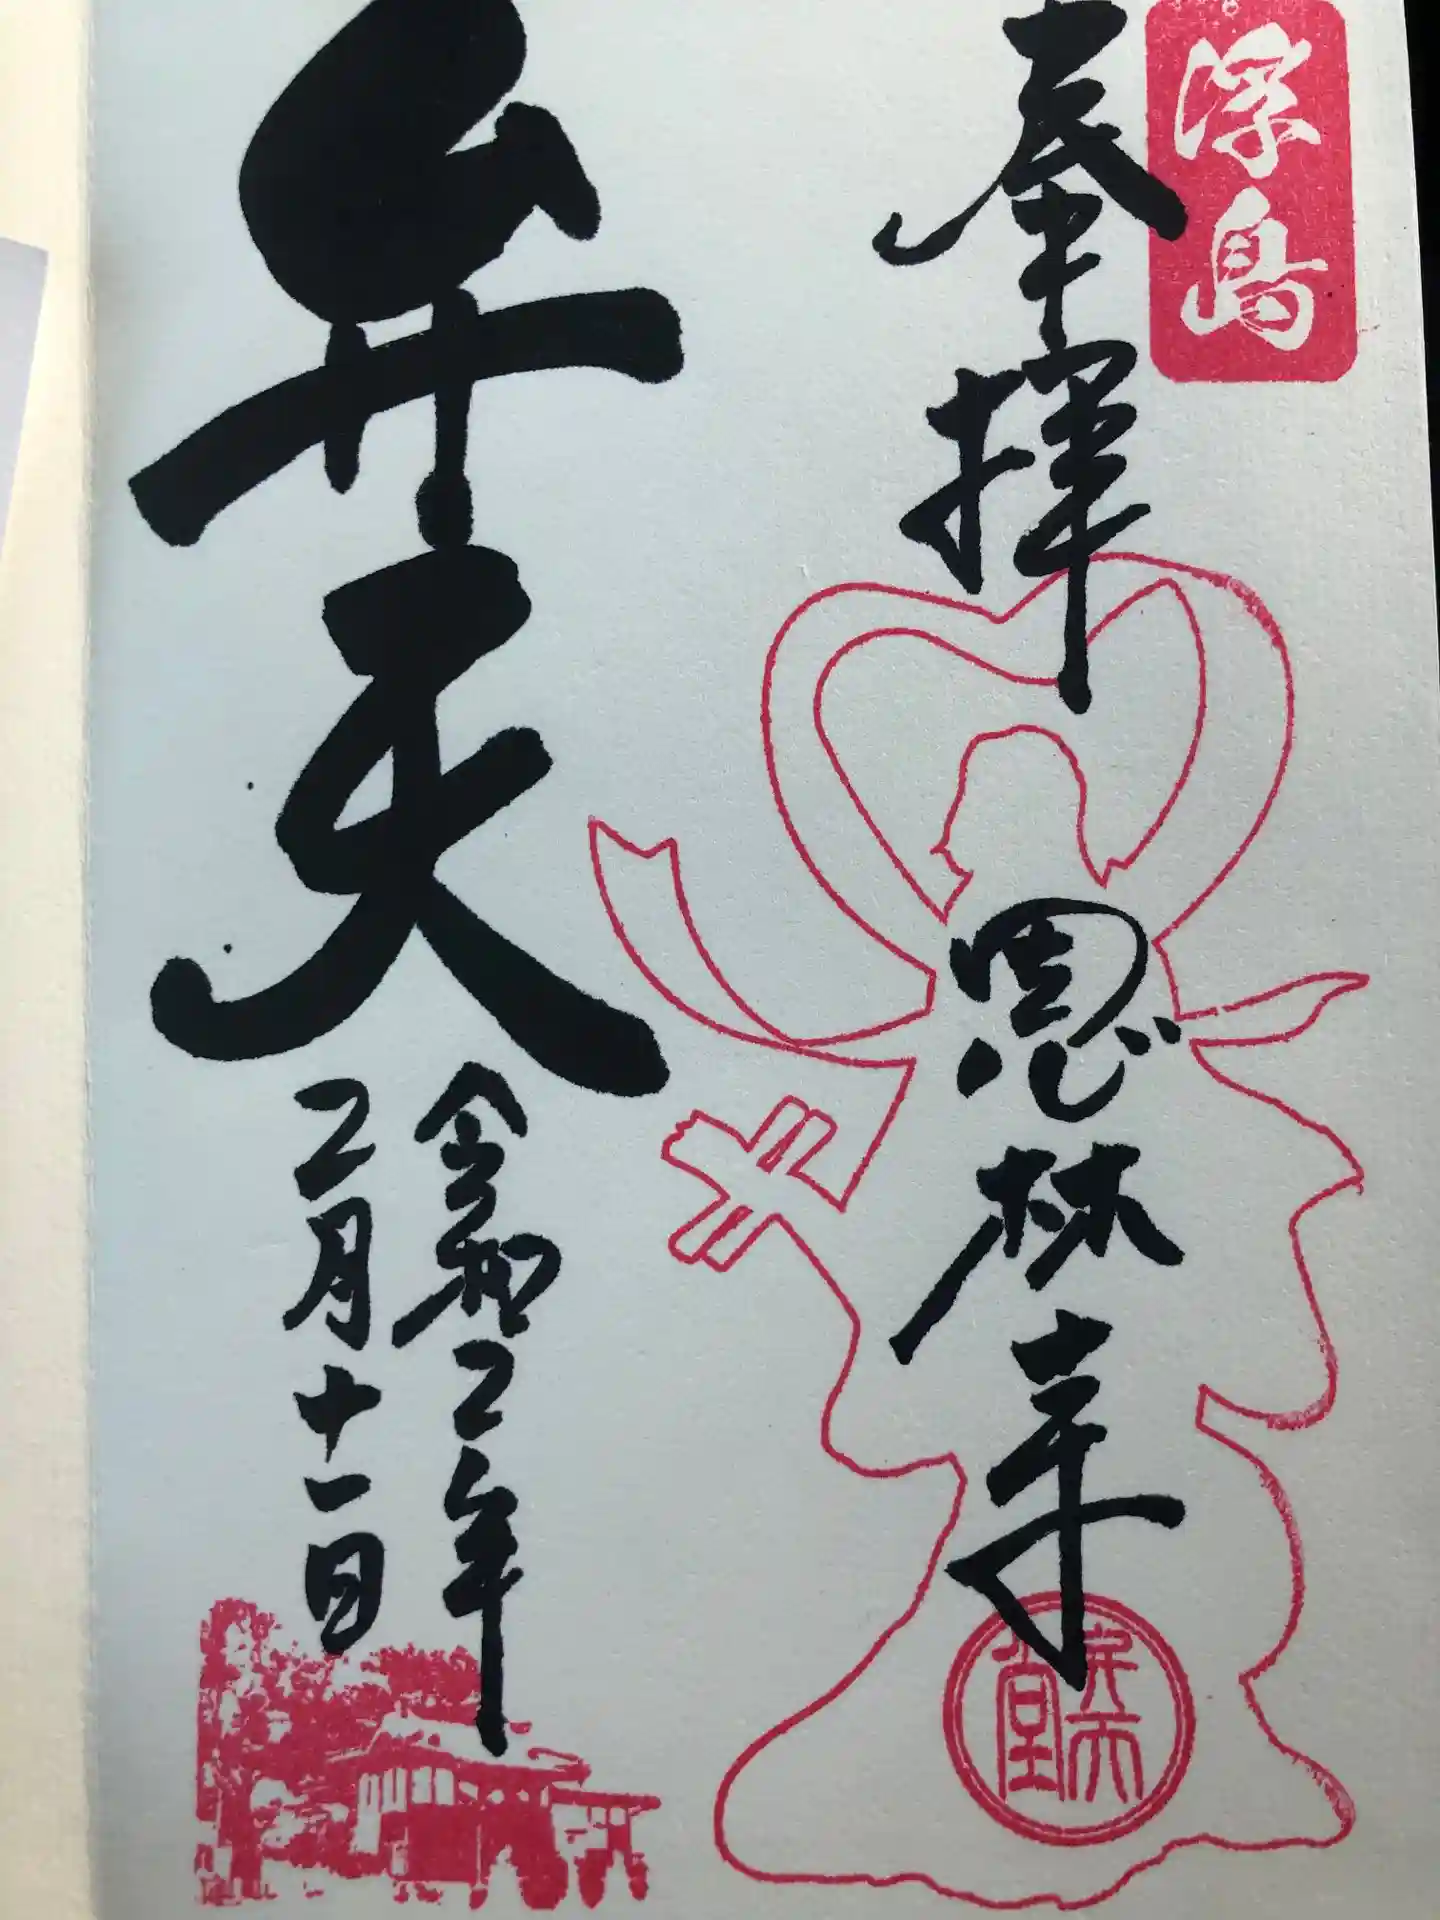 浮島
奉拝
恩林寺
弁天
令和二年
二月十一日
弁天堂